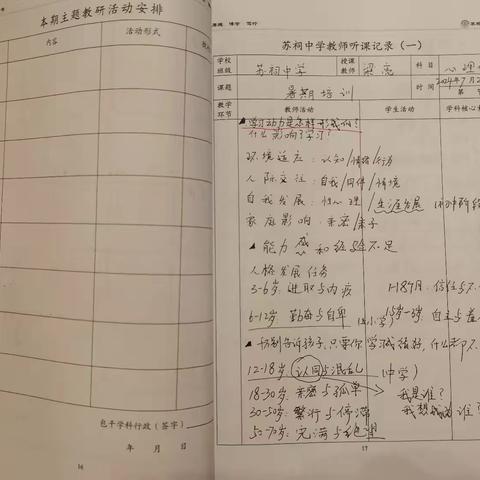 本期主题教研活动安排
内容 活动形式
包干学科行政（签字）
年 月 日
16
博学 笃行
苏祠中学教师听课记录（一）
学校班级 苏祠中学 授课教师 梁亮 科目 心理
课题 暑期培训 时间 2024年7月2
教学环节 教师活动 学生活动 学科核心
▲学习动力是怎样形成的？
什么影响了学习？
环境适应：认知/情绪/行为
人际交往：自我/同伴/情境
自我发展：性心理/生涯发展
家庭影响：亲密/亲子
▲能力感和经验不足
人格发展任务
3-6岁：进取与内疚 1-18个月：信任与不
6-12岁 勤奋与自卑（小学） 1.5岁-3岁：自主与羞
▲切割告诉孩子，只要你学习成绩好，什么都不
12-18岁（认同与混乱）（中学）
18-30岁：亲密与孤单 我是谁？
30-50岁：繁衍与停滞 我想成为谁？
50-70岁：完满与绝望
17